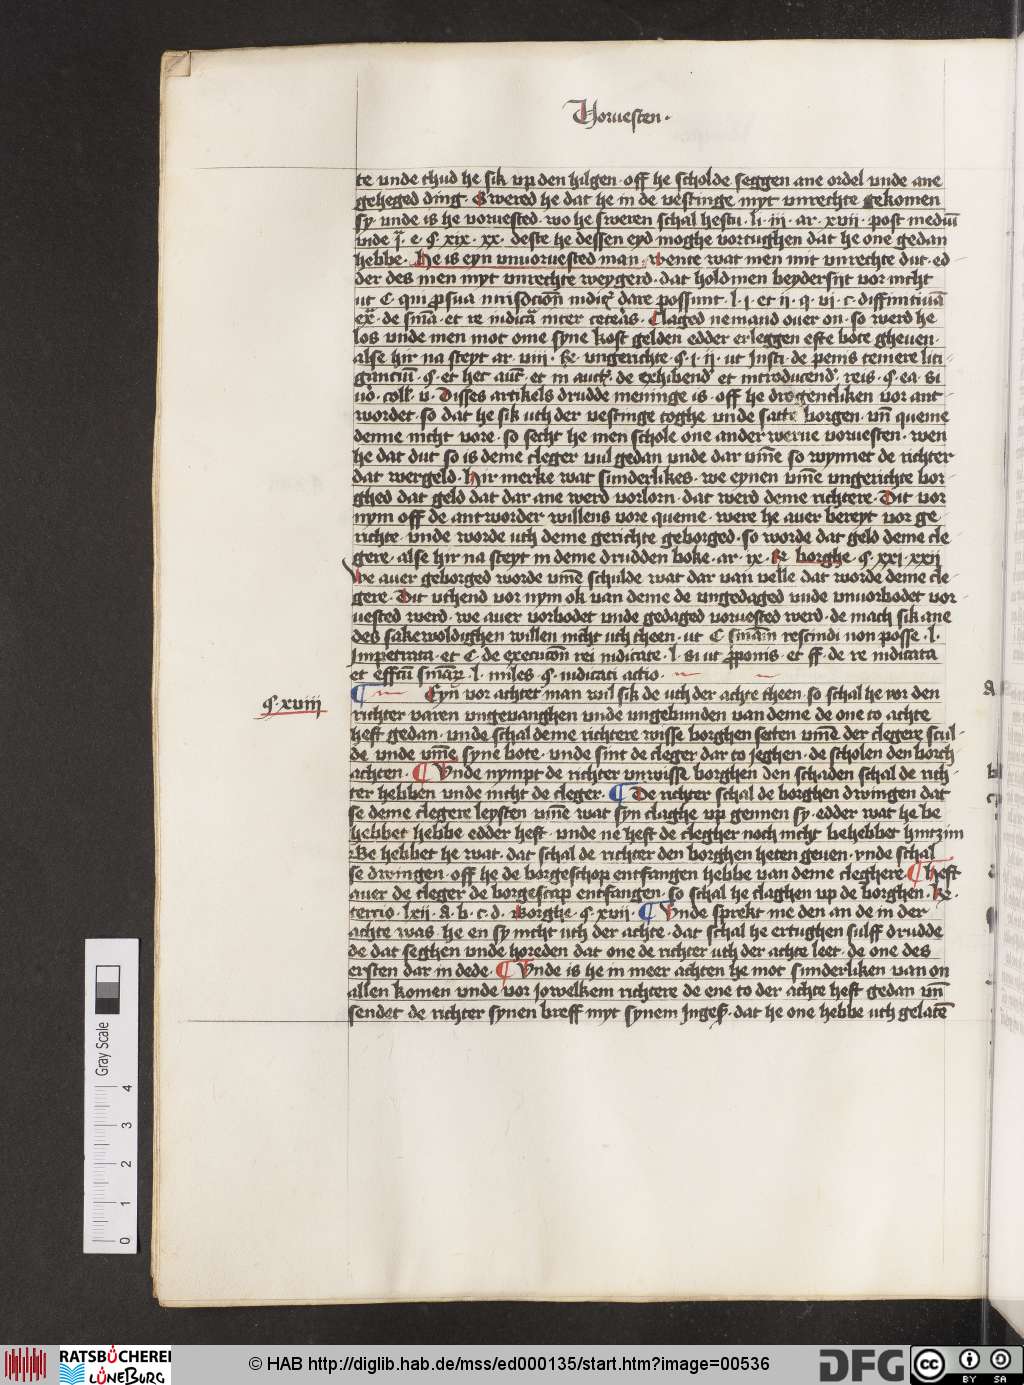 Voruesten·
te vnde thud he sik vp den hilgen· off he scholde seggen ane ordel vnde ane
geheged ding· Swered he dat he in de vestinge myt vnrechte gekomen
sy· vnde is he voruested· wo he sweren schal hestu· li· iii· ar· xvii· post mediū
vnde · e· ꝯ xix· xx· deste he dessen eyd moghe vortughen dat he one gedan
hebbe· He is eyn vnuoruested man· wente wat men mit vnrechte dut· ed
der des men myt vnrechte weygerd· dat holdmen beydersijt vor nicht
ut C qui iudic dare possunt· l· i· et ij· q· vi· c· diffinitiuā
de sma· et re iudica inter ceteras· Claged nemand ouer on· so werd he
los vnde men mot ome syne kost gelden edder erleggen efte bote gheuen·
alse hir na steyt ar· viii· Re· vngerichte ꝯ· i· ij· ut Insti· de penis temere liti
ganciū· ꝯ· et hec aut· et in auct de exhibend et introducend reis· ꝯ· ea· si
coll· v· Disses artikels drudde meninge is· off he drogentliken vor ant
wordet· so dat he sik uth der vestinge toghe vnde satte borgen· vn queme
denne nicht vore· so secht he men schole one ander werue voruesten· wen
he dat dut so is deme cleger vul gedan vnde dar vme so wynnet de richter
dat wergeld· Hir merke wat sunderlikes· we eynen vme vngerichte bor
ghed dat geld dat dar ane werd vorlorn· dat werd deme richtere· Dit vor
nym off de antworder willens vore queme· were he auer bereyt vor ge
richte· vnde worde uth deme gerichte geborged· so worde dat geld deme cle
gere· alse hir na steyt in deme drudden boke· ar· ix· R borghe· ꝯ· xxi· xxij
We auer geborged worde vme schulde wat dar van velle dat worde deme cle
gere· Dit vthend vor nym ok van deme de vngedaged vnde vnuorbodet vor
uested werd· we auer vorbodet vnde gedaged voruested werd· de mach sik ane
des sakewoldighen willen nicht uth theen· ut C smam rescindi non posse· l·
Impetrata· et C· de execucon rei iudicate· l· si ut pponis· et ff· de re iudicata
et effectu l· miles· ꝯ· iudicati actio·
ꝯ· xviij
¶ Eyn vor achter man wil sik de uth der achte theen· so schal he vor den
richter varen vngeuanghen vnde vngebunden van deme de one to achte
heft gedan· vnde schal deme richtere wisse borghen setten vmd der clegere scul
de· vnde vme syne bote· vnde sint de cleger dar to jeghen· de scholen den borch
achten· ¶ Vnde nympt de richter vnwisse borghen den schaden schal de rich
ter hebben vnde nicht de cleger· ¶ De richter schal de borghen dwingen dat
se deme clegere leysten vme wat syn claghe vp gennen sy· edder wat he be
hebbet hebbe edder heft· vnde ne heft de clegher noch nicht behebbet hintzim
Be hebbet he wat· dat schal de richter den borghen heten geuen· vnde schal
se dwingen· off he de borgeschop entfangen hebbe van deme cleghere· ¶ Heft
auer de cleger de borgescap entfangen· so schal he claghen vp de borghen· Re·
tercio· lxii· A· b· c· d· Borghe· ꝯ· xvij· ¶ Vnde sprekt me den an de in der
achte was· he en sy nicht uth der achte· dat schal he ertughen sulff drudde
de dat seghen vnde horeden dat one de richter uth der achte leet· de one des
ersten dar in dede· ¶ Vnde is he in meer achten he mot sunderliken van on
allen komen vnde vor jowelkem richtere de ene to der achte heft gedan vn
sendet de richter synen breff myt synem Ingeß· dat he one hebbe uth gelatē
Gray Scale
0 1 2 3 4
RATSBÜCHEREI
LÜNEBURG
© HAB http://diglib.hab.de/mss/ed000135/start.htm?image=00536
DFG
cc BY SA